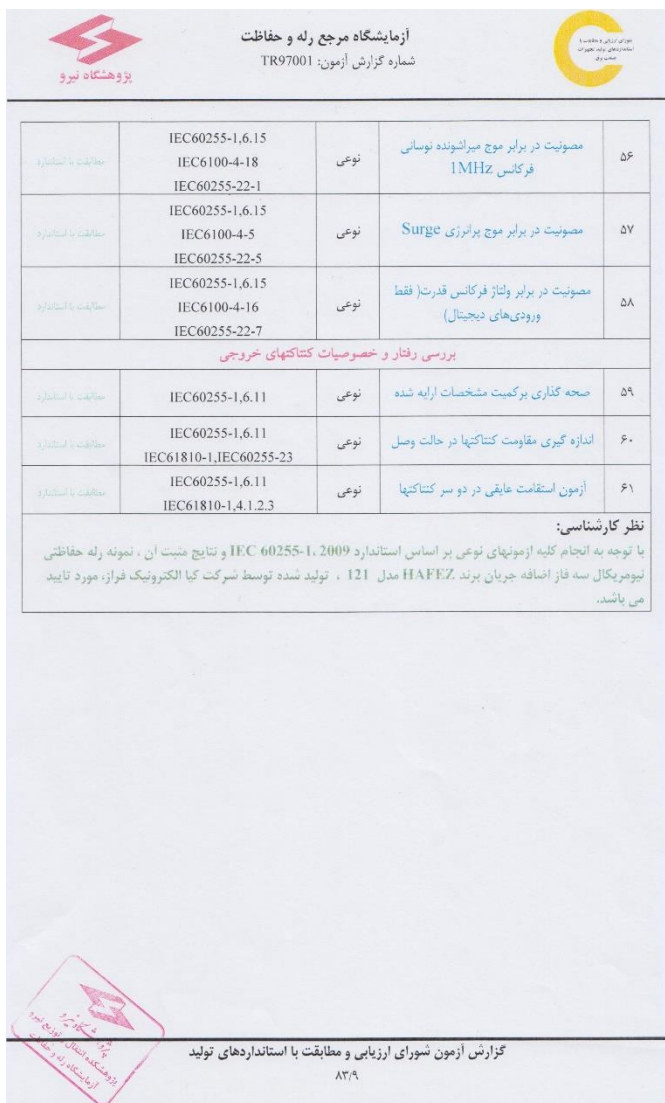 آزمایشگاه مرجع رله و حفاظت
شماره گزارش آزمون: TR97001
پژوهشگاه نیرو
شورای ارزیابی و مطابقت با
استانداردهای تولید تجهیزات
صنعت برق
۵۶
مصونیت در برابر موج میراشونده نوسانی
فرکانس 1MHz
نوعی
IEC60255-1,6.15
IEC6100-4-18
IEC60255-22-1
مطابقت با استاندارد
۵۷
مصونیت در برابر موج پرانرژی Surge
نوعی
IEC60255-1,6.15
IEC6100-4-5
IEC60255-22-5
مطابقت با استاندارد
۵۸
مصونیت در برابر ولتاژ فرکانس قدرت( فقط
ورودی‌های دیجیتال)
نوعی
IEC60255-1,6.15
IEC6100-4-16
IEC60255-22-7
مطابقت با استاندارد
بررسی رفتار و خصوصیات کنتاکتهای خروجی
۵۹
صحه گذاری برکمیت مشخصات ارایه شده
نوعی
IEC60255-1,6.11
مطابقت با استاندارد
۶۰
اندازه گیری مقاومت کنتاکتها در حالت وصل
نوعی
IEC60255-1,6.11
IEC61810-1,IEC60255-23
مطابقت با استاندارد
۶۱
آزمون استقامت عایقی در دو سر کنتاکتها
نوعی
IEC60255-1,6.11
IEC61810-1,4.1.2.3
مطابقت با استاندارد
نظر کارشناسی:
با توجه به انجام کلیه ازمونهای نوعی بر اساس استاندارد IEC 60255-1، 2009 و نتایج مثبت آن ، نمونه رله حفاظتی
نیومریکال سه فاز اضافه جریان برند HAFEZ مدل 121 ، تولید شده توسط شرکت کیا الکترونیک فراز، مورد تایید
می باشد.
پژوهشگاه نیرو
پژوهشکده انتقال و توزیع نیرو
آزمایشگاه رله و حفاظت
گزارش آزمون شورای ارزیابی و مطابقت با استانداردهای تولید
۸۳/۹